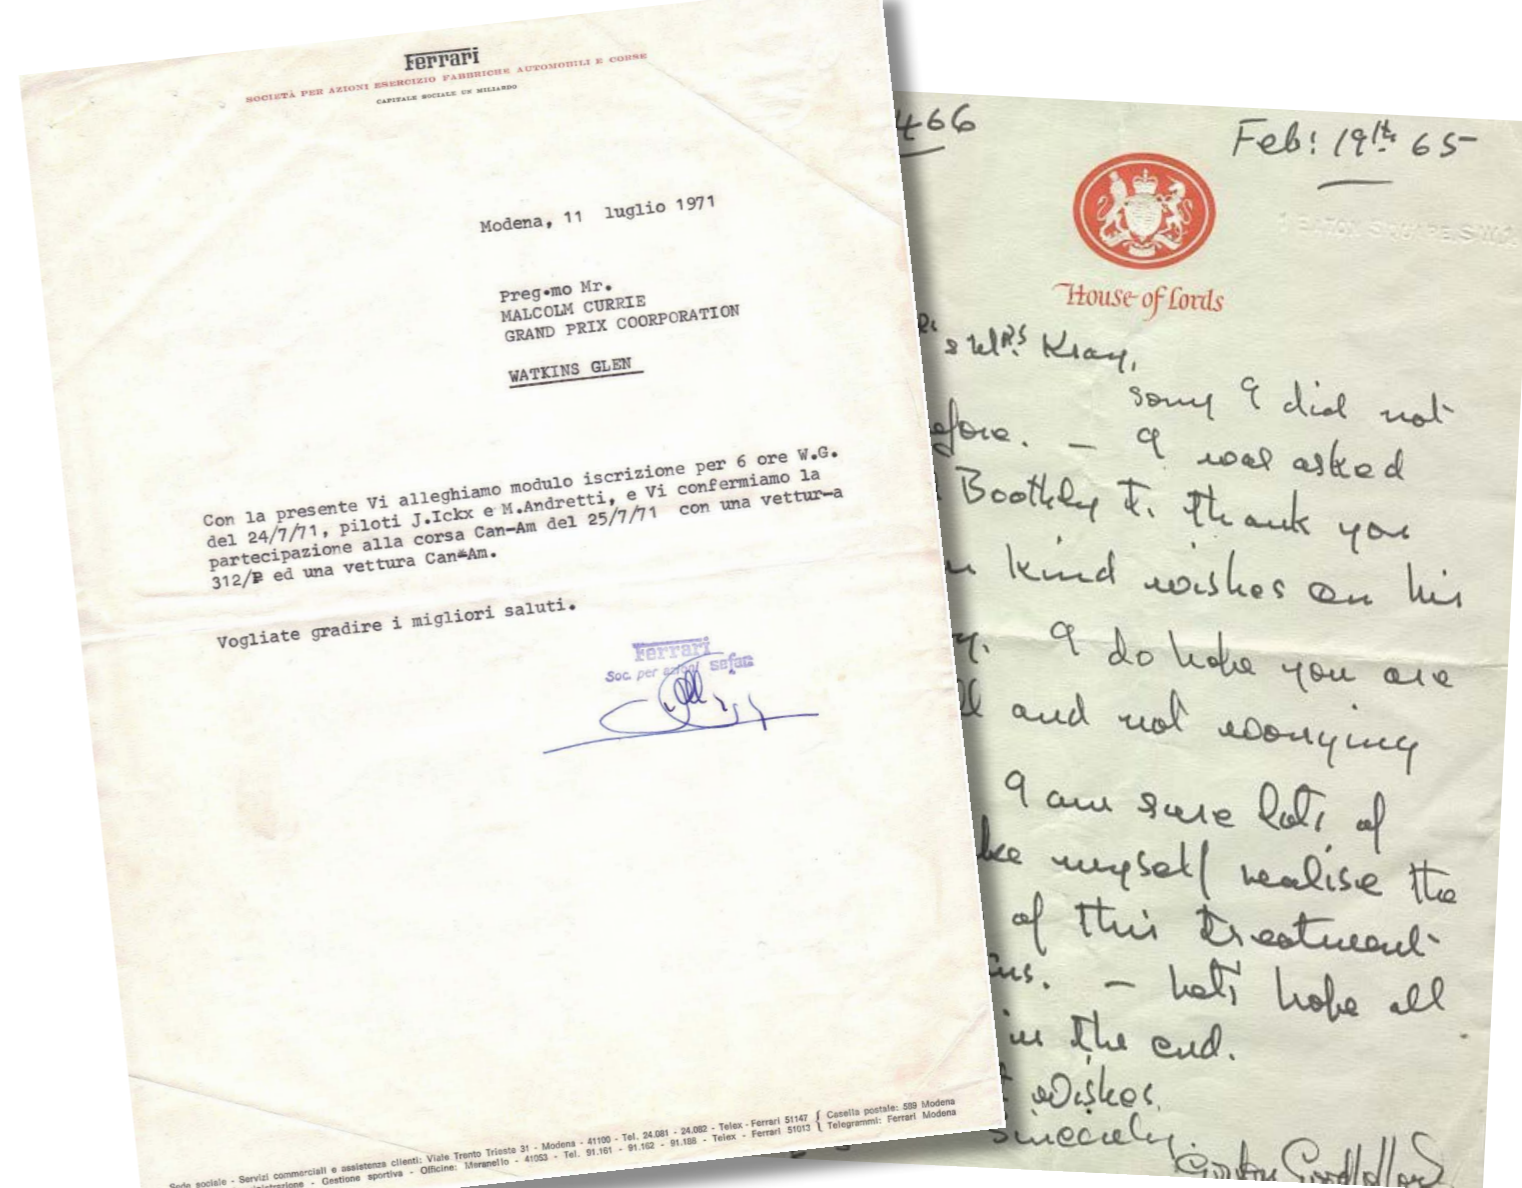 Ferrari
SOCIETÀ PER AZIONI ESERCIZIO FABBRICHE AUTOMOBILI E CORSE
CAPITALE SOCIALE UN MILIARDO
Modena, 11 luglio 1971
Preg.mo Mr.
MALCOLM CURRIE
GRAND PRIX COORPORATION
WATKINS GLEN
Con la presente Vi alleghiamo modulo iscrizione per 6 ore W.G.
del 24/7/71, piloti J.Ickx e M.Andretti, e Vi confermiamo la
partecipazione alla corsa Can-Am del 25/7/71 con una vettur-a
312/P ed una vettura Can-Am.
Vogliate gradire i migliori saluti.
Ferrari
Soc. per azioni sefac
Sede sociale - Servizi commerciali e assistenza clienti: Viale Trento Trieste 31 - Modena - 41100 - Tel. 24.081 - 24.082 - Telex - Ferrari 51147 { Casella postale: 589 Modena
- Gestione sportiva - Officine: Maranello - 41053 - Tel. 91.161 - 91.162 - 91.188 - Telex - Ferrari 51013 { Telegrammi: Ferrari Modena
466
Feb: 19th 65
1 EATON SQUARE, S.W.1.
House of Lords
& Mrs Kray,
sorry I did not
before. — I was asked
Boothby to thank you
kind wishes on his
I do hope you are
and not worrying
I am sure lots of
like myself realise the
of this treatment
— Let's hope all
in the end.
wishes
Sincerely.